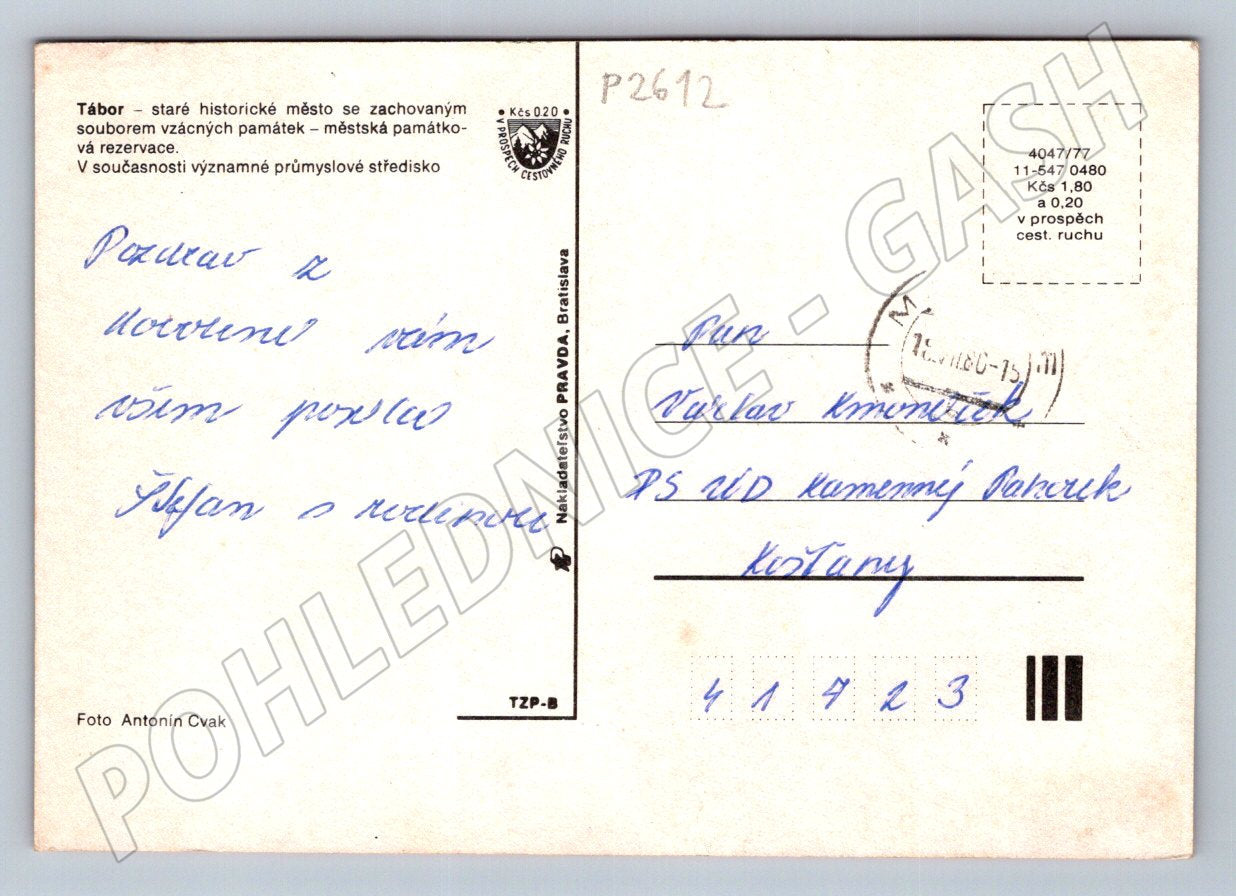 P2612
Tábor – staré historické město se zachovaným
souborem vzácných památek – městská památko-
vá rezervace.
V současnosti významné průmyslové středisko
• Kčs 0.20 •
V PROSPĚCH CESTOVNÉHO RUCHU
Pozdrav z
dovolené vám
všem posílá
Štefan s rodinou
Nakladateľstvo PRAVDA, Bratislava
TZP-B
Foto Antonín Cvak
4047/77
11-547 0480
Kčs 1,80
a 0,20
v prospěch
cest. ruchu
Pan
Václav
Kamenný Pahorek
Košťany
41723
POHLEDNICE - GASH